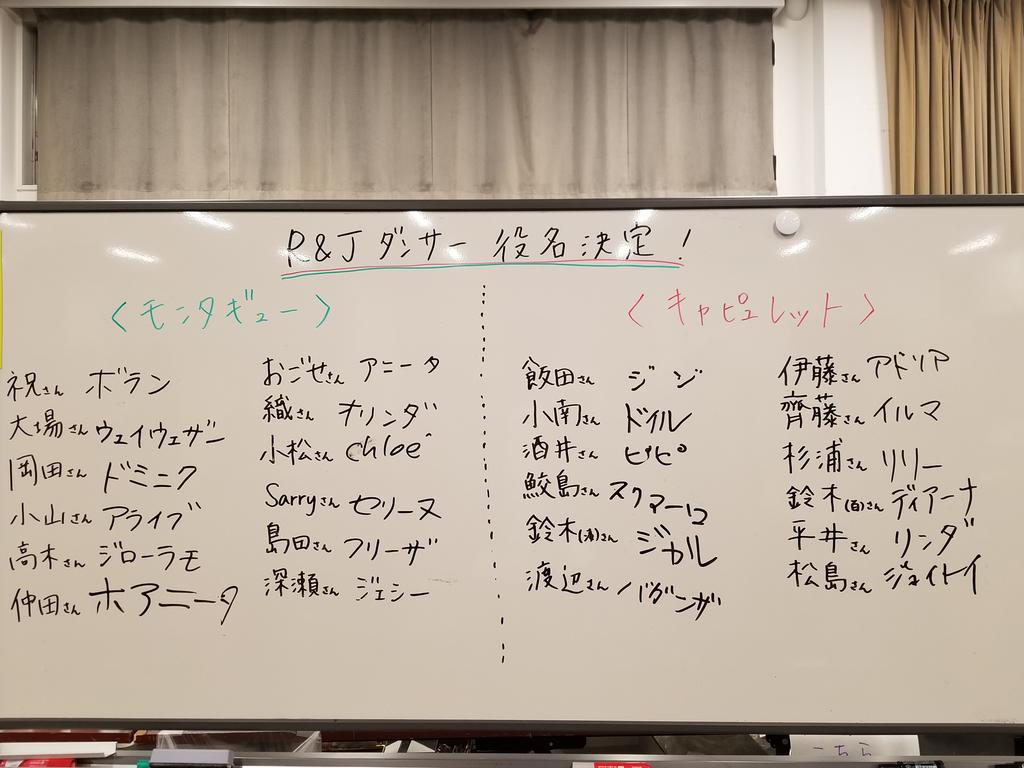 R&Jダンサー 役名決定!
〈モンタギュー〉
祝さん ボラン
大場さん ウェイウェザー
岡田さん ドミニク
小山さん アライブ
高木さん ジローラモ
仲田さん ホアニータ
おごせさん アニータ
織さん オリンダ
小松さん Chloe
Sarryさん セリーヌ
島田さん フリーザ
深瀬さん ジェシー
〈キャピュレット〉
飯田さん ジン
小南さん ドイル
酒井さん ピピ
鮫島さん スクアーロ
鈴木さん ジカル
渡辺さん バガンザ
伊藤さん アドリア
齊藤さん イルマ
杉浦さん リリー
鈴木(百)さん ディアーナ
平井さん リンダ
松島さん ジェイトイ
こちら